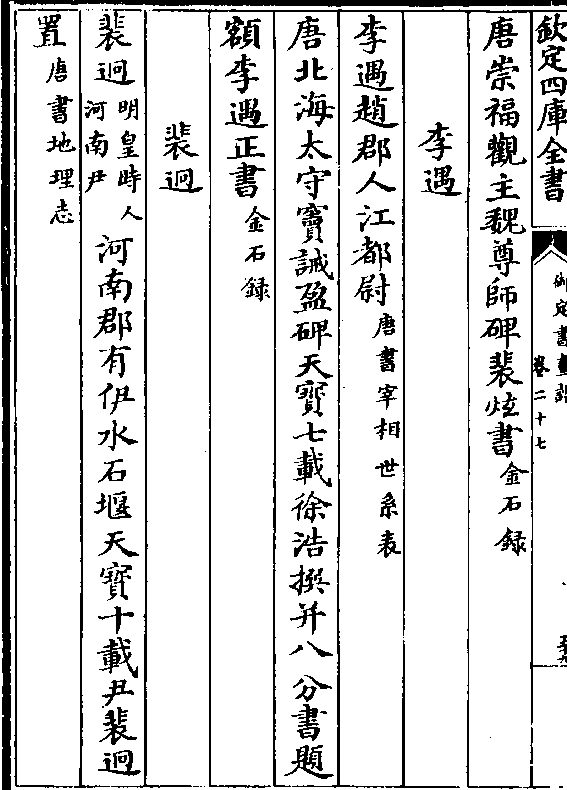 欽定四庫全書
御定書畫譜
卷二十七
唐崇福觀主魏尊師碑裴炫書金石録
李遇
李遇趙郡人江都尉唐書宰相世系表
唐北海太守竇誡盈碑天寶七載徐浩撰并八分書題
額李遇正書金石録
裴迥
裴迥明皇時人河南尹河南郡有伊水石堰天寶十載尹裴迥
置唐書地理志